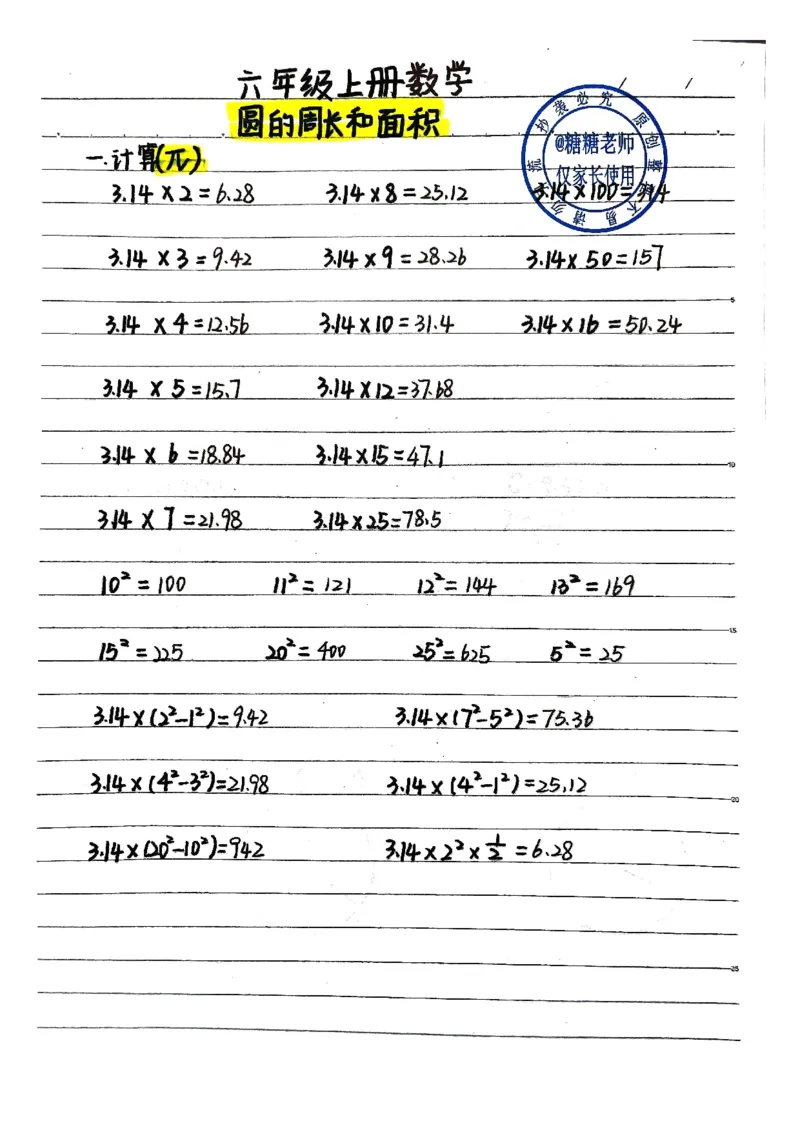 六年级上册数学
圆的周长和面积
一.计算(π)
3.14×2=6.28 3.14×8=25.12 3.14×100=314
3.14×3=9.42 3.14×9=28.26 3.14×50=157
3.14×4=12.56 3.14×10=31.4 3.14×16=50.24
3.14×5=15.7 3.14×12=37.68
3.14×6=18.84 3.14×15=47.1
3.14×7=21.98 3.14×25=78.5
10²=100 11²=121 12²=144 13²=169
15²=225 20²=400 25²=625 5²=25
3.14×(2²-1²)=9.42 3.14×(7²-5²)=75.36
3.14×(4²-3²)=21.98 3.14×(4²-1²)=25.12
3.14×(20²-10²)=942 3.14×2²×1/2=6.28
@糖糖老师
仅家长使用
抄袭必究
原创整理不易请勿
5
10
15
20
25